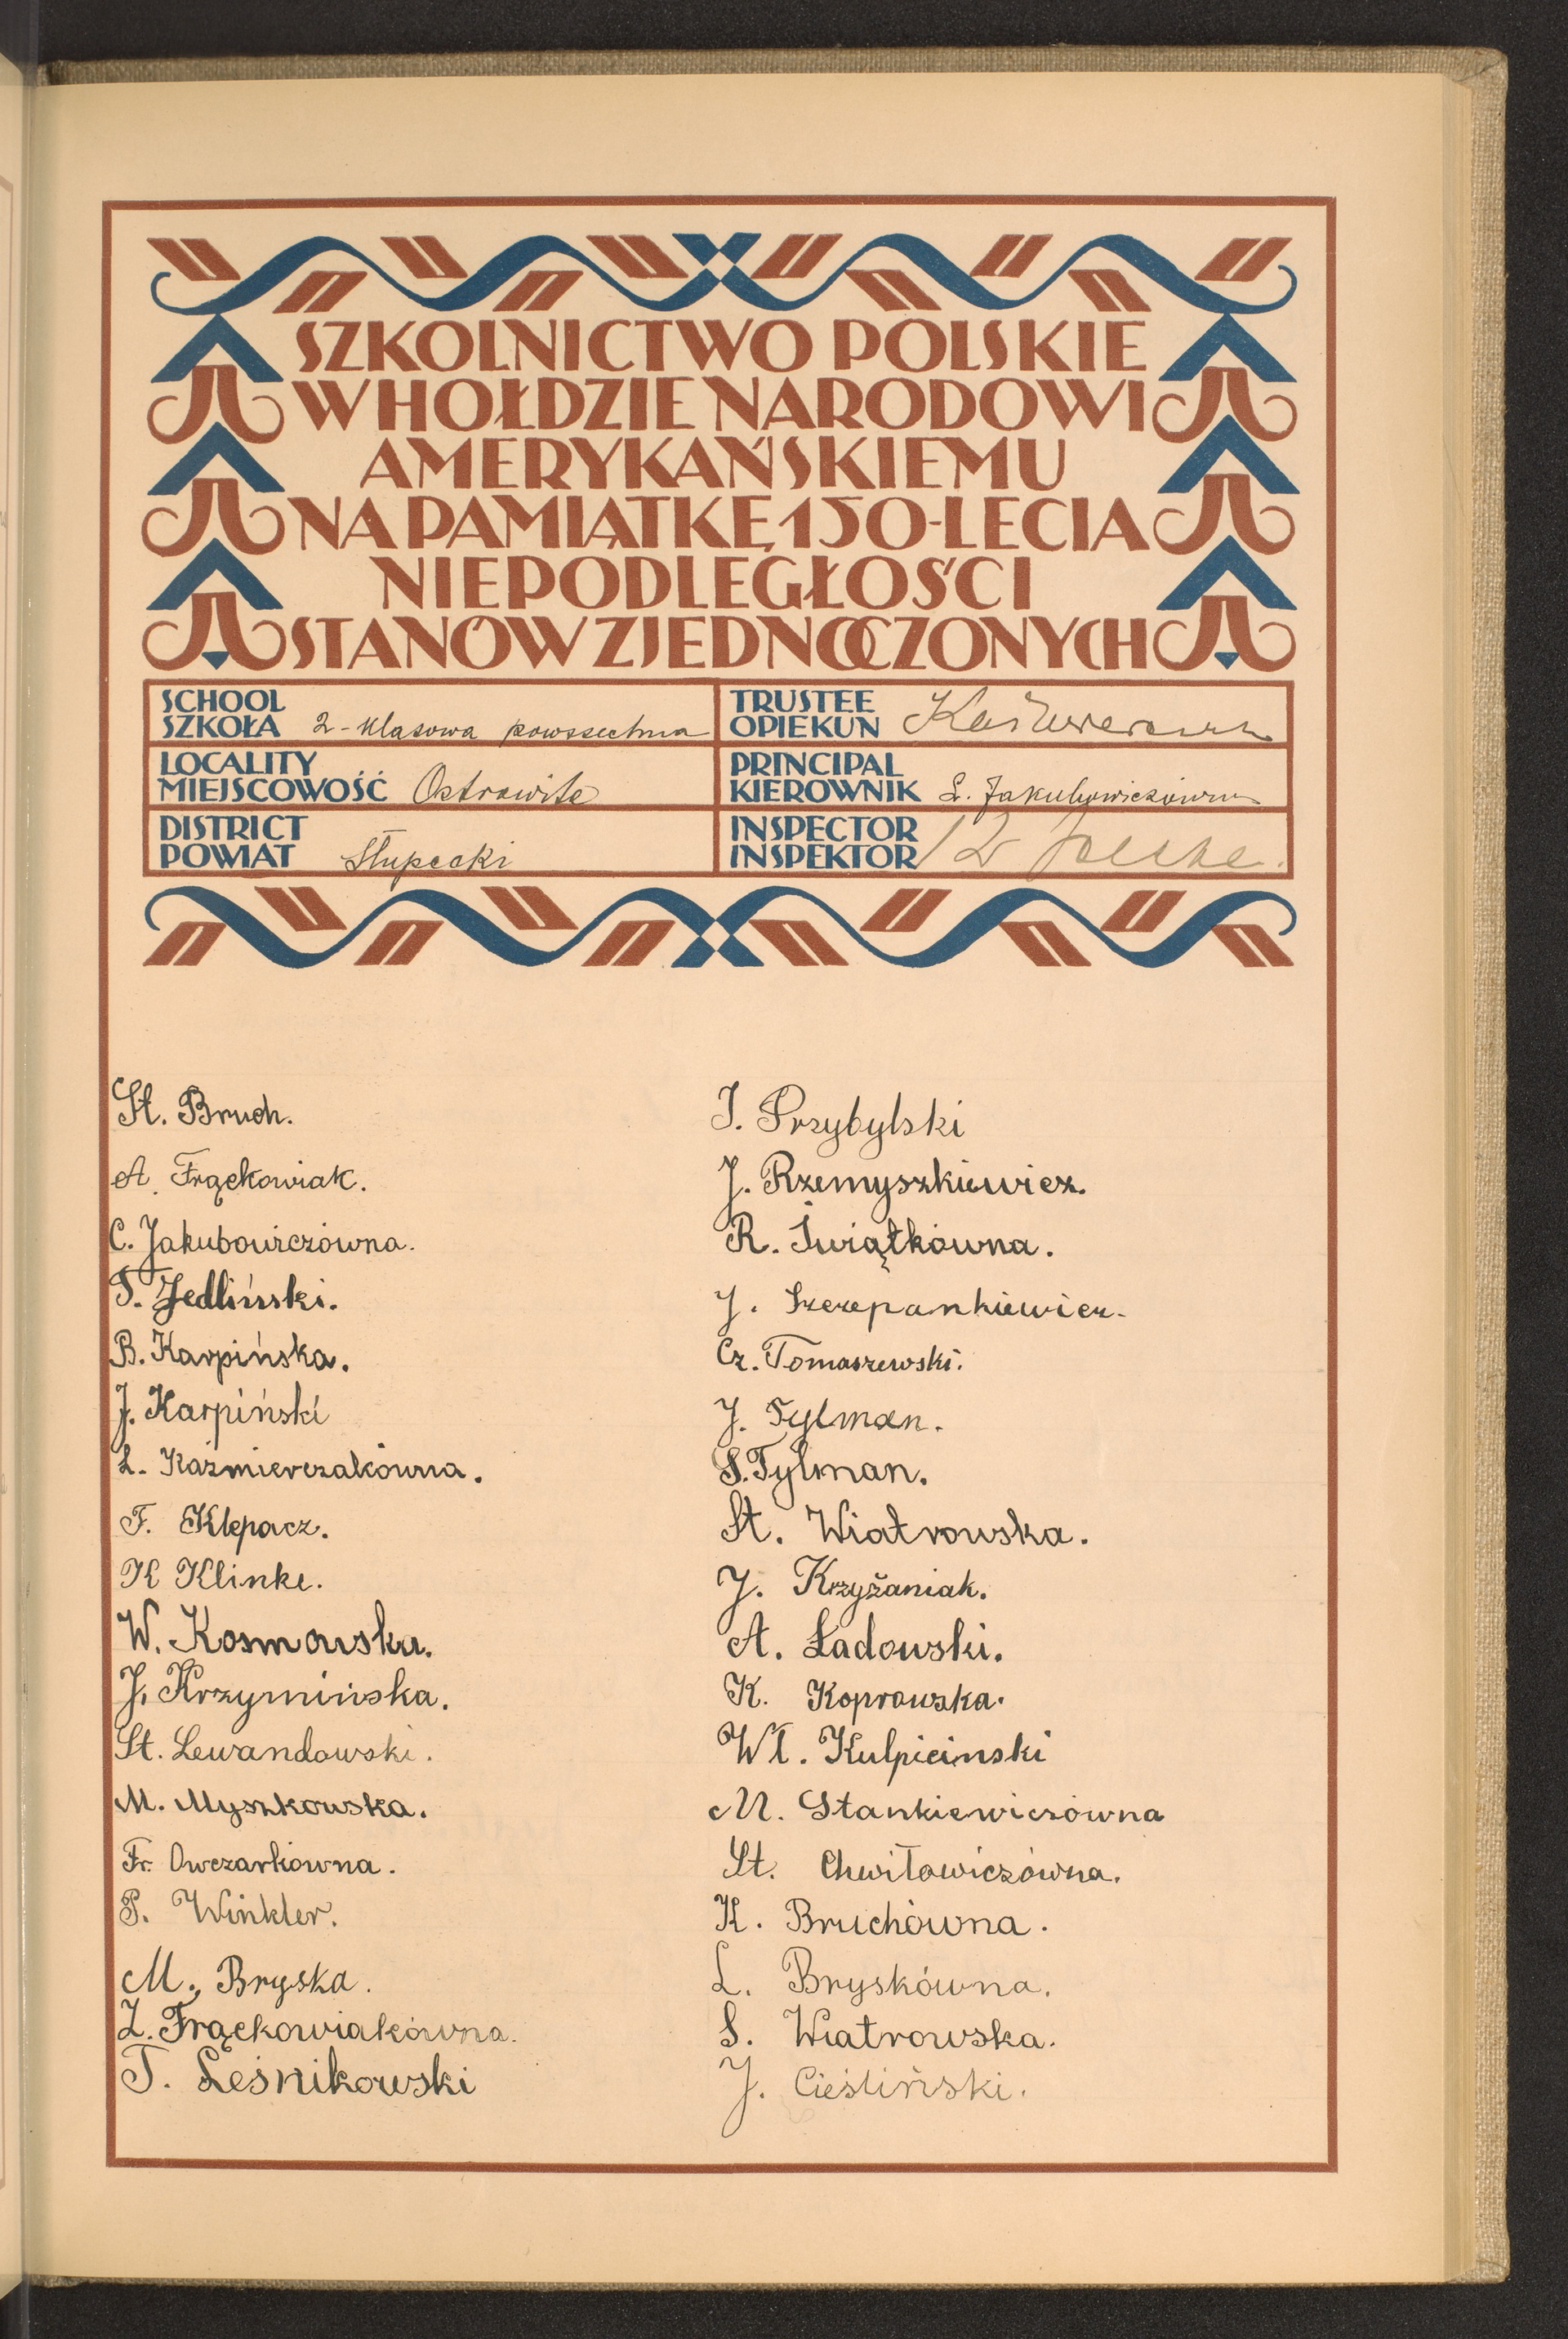 SZKOLNICTWO POLSKIE
W HOŁDZIE NARODOWI
AMERYKAŃSKIEMU
NA PAMIĄTKĘ 150-LECIA
NIEPODLEGŁOŚCI
STANÓW ZJEDNOCZONYCH
SCHOOL
SZKOŁA 2-klasowa powszechna
LOCALITY
MIEJSCOWOŚĆ Ostrowite
DISTRICT
POWIAT Słupecki
TRUSTEE
OPIEKUN
PRINCIPAL
KIEROWNIK L. Jakubowiczówna
INSPECTOR
INSPEKTOR
St. Bruch.
A. Frąckowiak.
C. Jakubowiczówna.
T. Jedliński.
B. Karpińska.
J. Karpiński
L. Kaźmierczakówna.
F. Klepacz.
K Klinke.
W. Kosmowska.
J. Krzymińska.
St. Lewandowski.
M. Myszkowska.
Fr. Owczarkówna.
P. Winkler.
M. Bryska.
Z. Frąckowiakówna.
T. Leśnikowski
J. Przybylski
J. Rzemyszkiewicz.
R. Świątkówna.
J. Szczepankiewicz.
Cz. Tomaszewski.
J. Tylman.
S. Tylman.
St. Wiatrowska.
J. Krzyżaniak.
A. Ładowski.
K. Koprowska.
Wł. Kulpicinski
M. Stankiewiczówna
St. Chwiłowiczówna.
K. Bruchówna.
L. Bryskówna.
S. Wiatrowska.
J. Cieśliński.